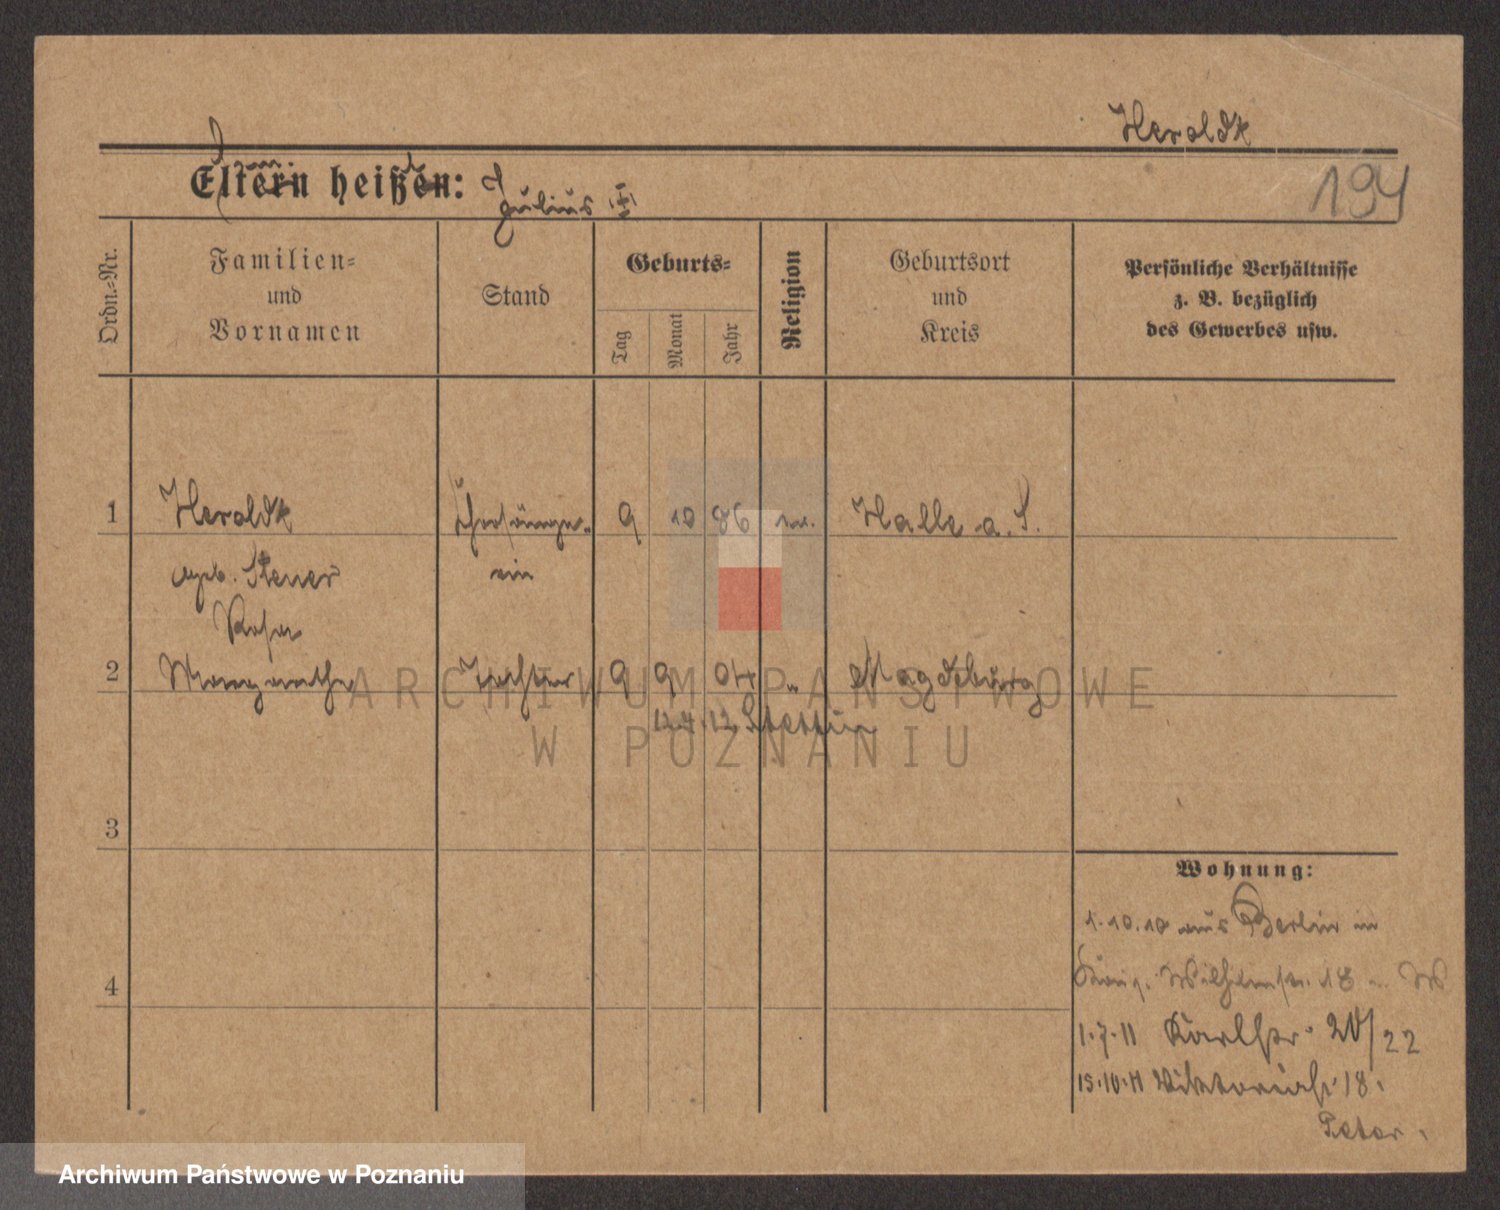 Heroldt
194
Eltern heißen: Julius
Ordn.-Nr.
Familien-
und
Vornamen
Stand
Geburts-
Tag
Monat
Jahr
Religion
Geburtsort
und
Kreis
Persönliche Verhältnisse
z. B. bezüglich
des Gewerbes usw.
1 Heroldt Chorsänger- 9 10 86 ev. Halle a. S.
geb. Steuer in
Rosa
2 Margarethe Tochter 9 9 04 " Magdeburg
12 Stettin
3
4
Wohnung:
1.10.10 aus Berlin in
Wilhelmstr. 18
1.7.11 Karlstr. 20/22
15.10.11 Viktoriastr. 18.
Peter.
ARCHIWUM PAŃSTWOWE
W POZNANIU
Archiwum Państwowe w Poznaniu